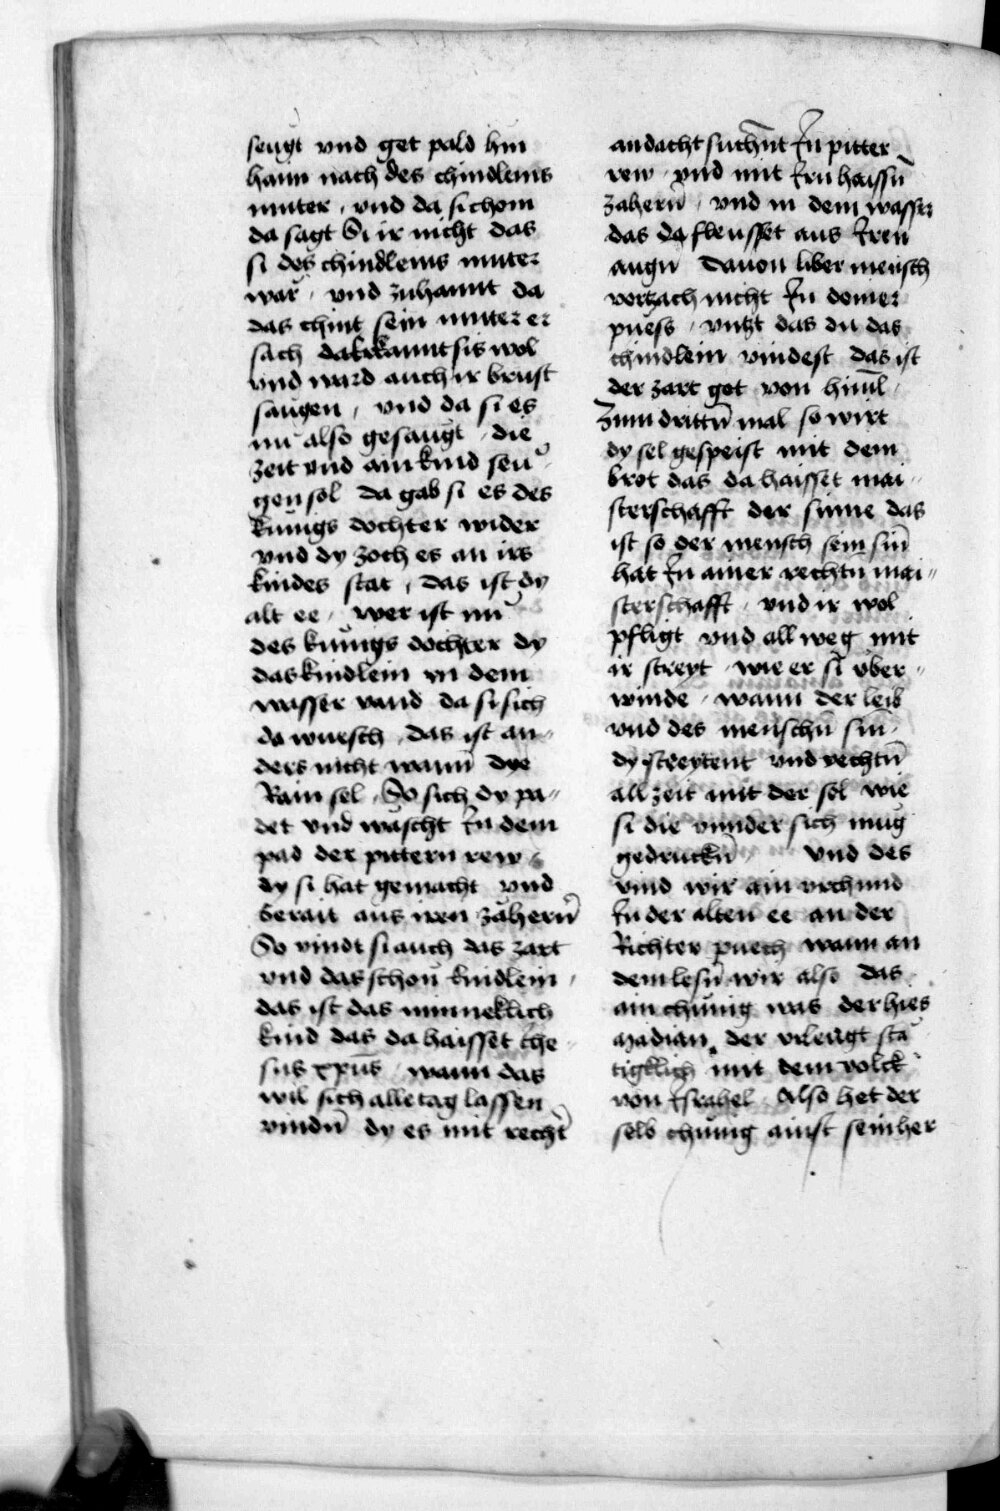 seugt vnd get pald hin
haim nach des chindleins
muter · vnd da si chom
da sagt Si ir nicht das
si des chindleins muter
war · vnd zuhannt da
das chint sein muter er
sach da erkannt sis wol
vnd ward auch ir brust
saugen · vnd da si es
nu also gesaugt · die
zeit vnd ain kind seu
gen sol da gab si es des
kunigs dochter wider
vnd dy zoch es an irs
kindes stat · das ist dy
alt ee · wer ist nu
des kunigs dochter dy
das kindlein in dem
wasser vand da si sich
da wuesch · das ist an
ders nicht wann dye
Rain sel · So sich dy pa
det vnd wascht Jn dem
pad der pittern rew ·
dy si hat gemacht vnd
berait aus iren zähern̄
So vindt si auch das zart
vnd das schon kindlein ·
das ist das minneklich
kind das da haisset Jhe
sus xp̄us · wann das
wil sich alle tag lassen
vindn̄ dy es mit recht̄
andacht suchn̄t Jn pitter
rew · vnd mit Jrn haissn̄
zähern̄ · vnd in dem wasser
das da fleusset aus Jren
augn̄ Dauon liber mensch
vertzach nicht Jn deiner
puess · vntzt das du das
chindlein vindest das ist
der zart got von himl̄ ·
Zum drittn̄ mal so wirt
dy sel gespeist mit dem
brot das da haisset mai
sterschafft der sinne das
ist so der mensch sein sin̄
hat Jn ainer rechtn̄ mai
sterschafft · vnd ir wol
pfligt vnd all weg mit
ir streyt · wie er si vber
winde · wann der leib
vnd des menschn̄ sin ·
dy streytent vnd vechtn̄
all zeit mit der sel wie
si die vnnder sich mug
gedruckn̄ · vnd des
vind wir ain vrchund
Jn der alten ee an der
Richter puech wann an
dem lesn̄ wir also das
ain chunig was der hies
Madian · der vrleugt sta
tigklich mit dem volck
von Jsrahel Also het der
selb chunig ainst sein her